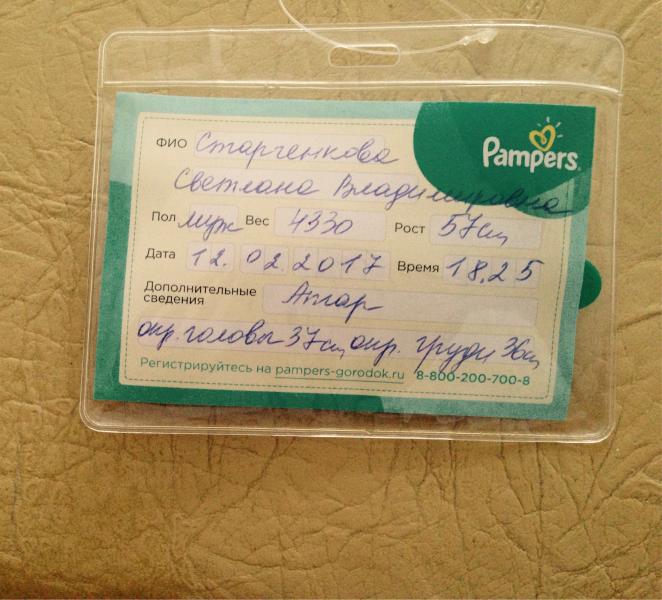 Pampers
ФИО Старченкова
Светлана Владимировна
Пол муж Вес 4330 Рост 57см
Дата 12.02.2017 Время 18.25
Дополнительные
сведения
окр. головы 37см окр. груди 36см
Регистрируйтесь на pampers-gorodok.ru 8-800-200-700-8